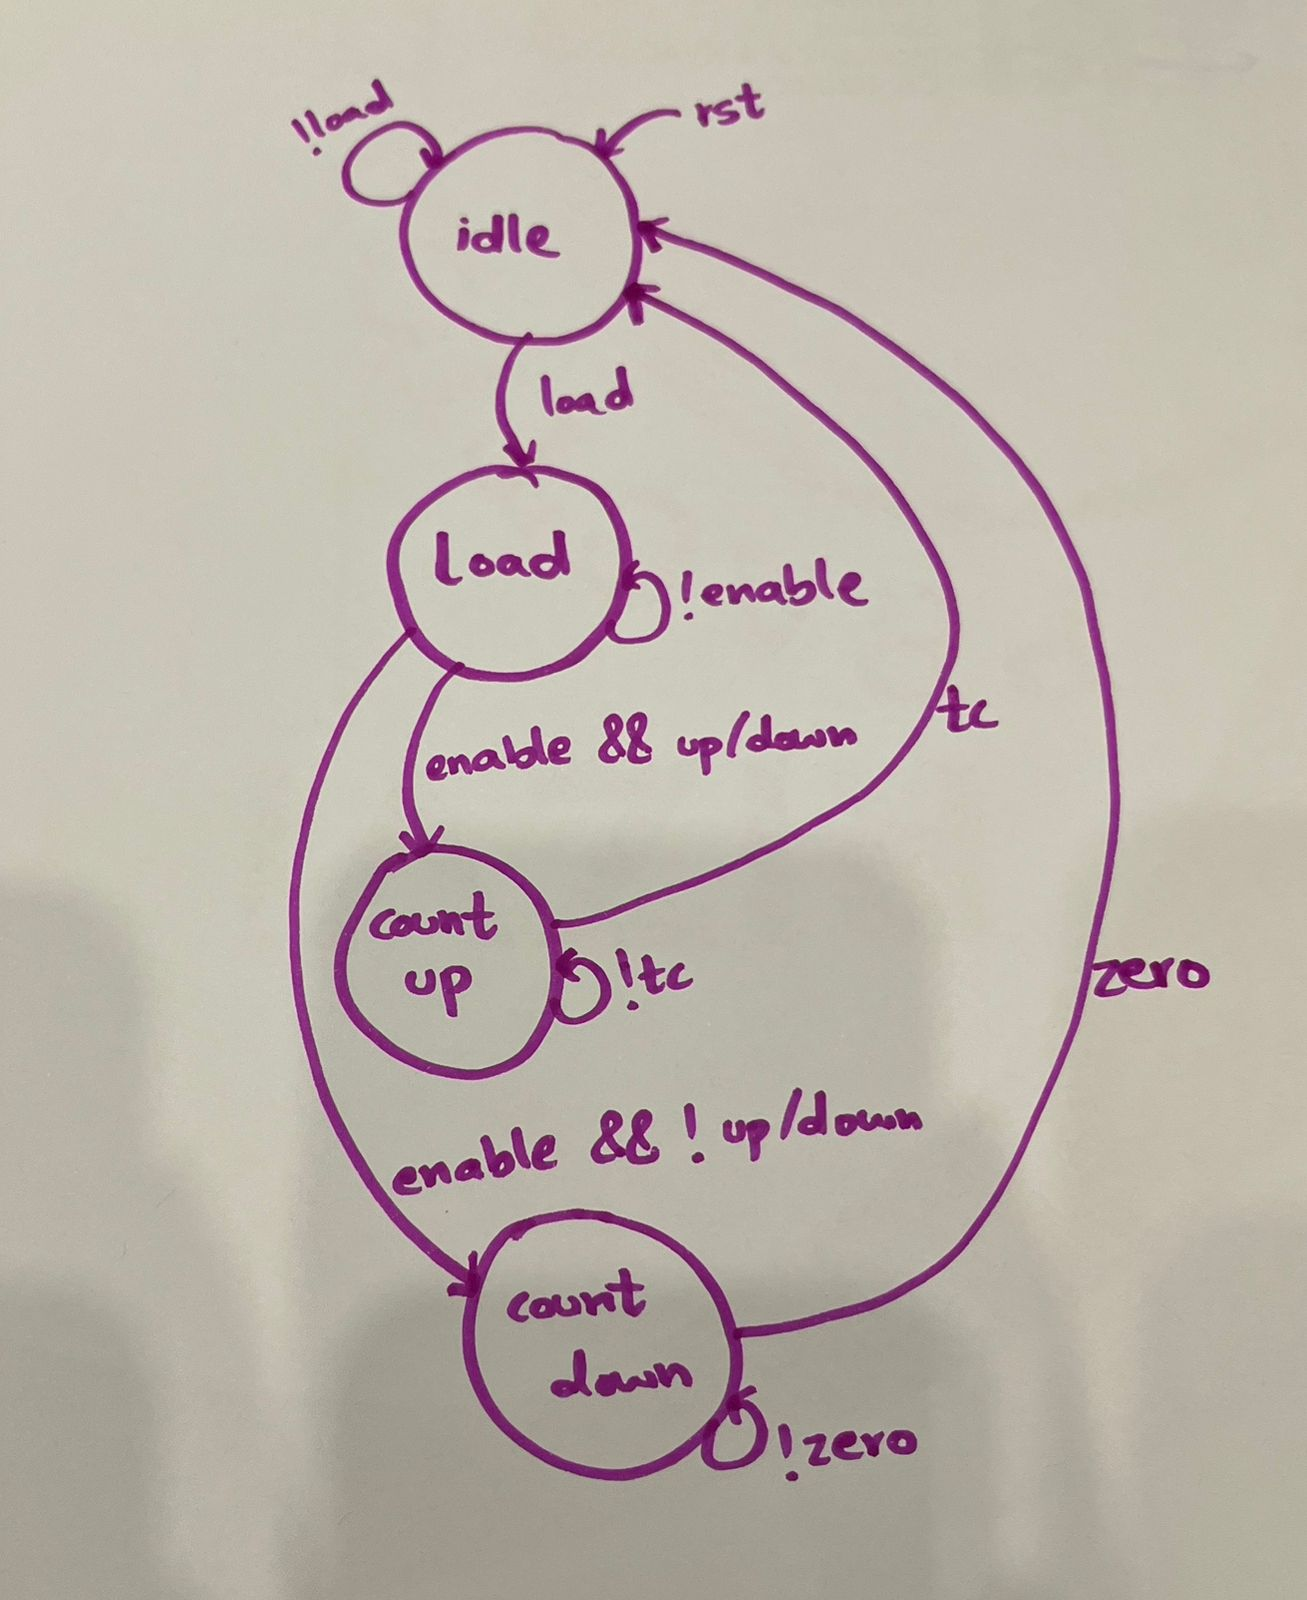 !load
rst
idle
load
load
!enable
enable && up/down
tc
count
up
!tc
zero
enable && ! up/down
count
down
!zero